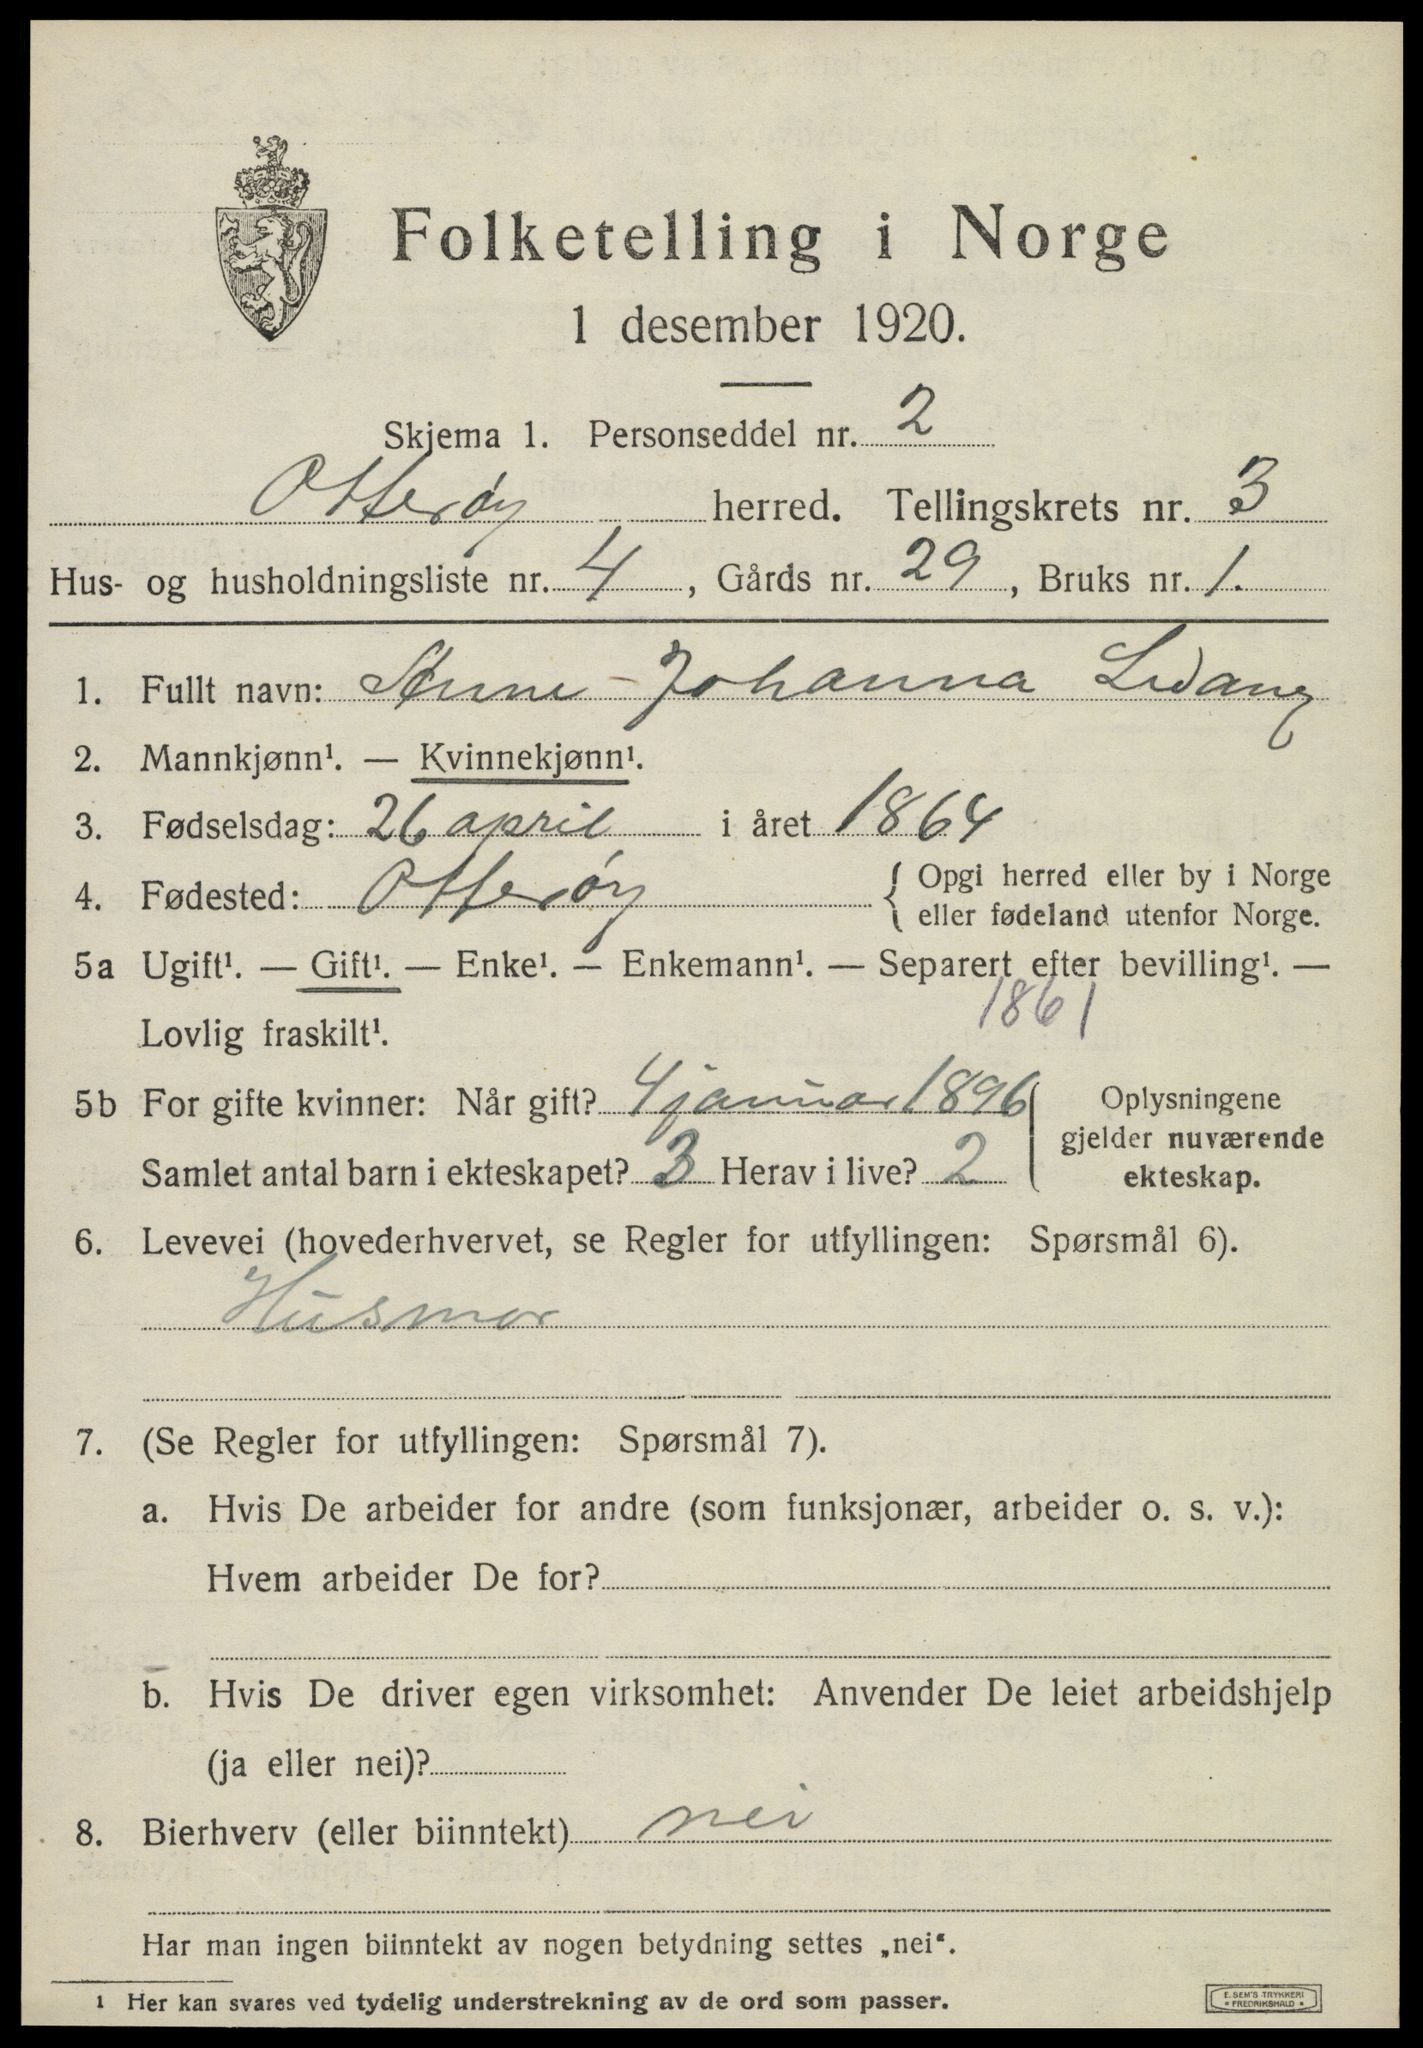 Folketelling i Norge
1 desember 1920.
Skjema 1. Personseddel nr. 2
Otterøy herred. Tellingskrets nr. 3
Hus- og husholdningsliste nr. 4, Gårds nr. 29, Bruks nr. 1.
1. Fullt navn: Anne Johanna Lvdang
2. Mannkjønn¹. — Kvinnekjønn¹.
3. Fødselsdag: 26 april i året 1864
4. Fødested: Otterøy { Opgi herred eller by i Norge
eller fødeland utenfor Norge.
5a Ugift¹. — Gift¹. — Enke¹. — Enkemann¹. — Separert efter bevilling¹. —
Lovlig fraskilt¹.
1861
5b For gifte kvinner: Når gift? 4 januar 1896
Samlet antal barn i ekteskapet? 3 Herav i live? 2
Oplysningene
gjelder nuværende
ekteskap.
6. Levevei (hovederhvervet, se Regler for utfyllingen: Spørsmål 6).
Husmor
7. (Se Regler for utfyllingen: Spørsmål 7).
a. Hvis De arbeider for andre (som funksjonær, arbeider o. s. v.):
Hvem arbeider De for?
b. Hvis De driver egen virksomhet: Anvender De leiet arbeidshjelp
(ja eller nei)?
8. Bierhverv (eller biinntekt) nei
Har man ingen biinntekt av nogen betydning settes „nei“.
1 Her kan svares ved tydelig understrekning av de ord som passer.
E. SEM'S TRYKKERI
* FREDRIKSHALD *